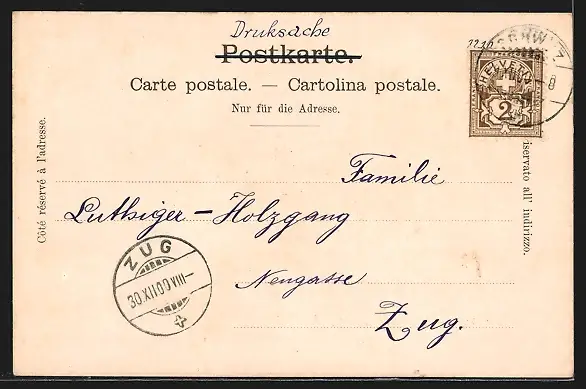 Druksache
Postkarte.
Carte postale. — Cartolina postale.
Nur für die Adresse.
Côté réservé à l'adresse.
HELVETIA
2
Familie
Luthiger – Holzgang
Neugasse
Zug.
ZUG
30.XII.00 VIII–
riservato all' indirizzo.